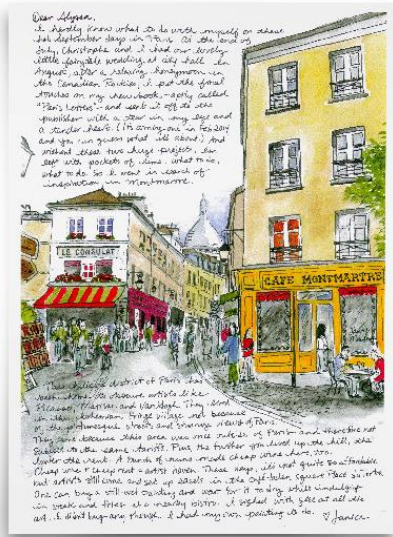 Dear Alyson,
I hardly know what to do with myself on these
hot September days in Paris. At the end of
July, Christophe and I had our lovely
little fairytale wedding at city hall. In
August, after a relaxing honeymoon in
the Canadian Rockies, I put the final
touches on my new book - aptly called
"Paris Letters" - and sent it off to the
publisher with a tear in my eye and
a tender heart. (It's coming out in Feb 2014
and you can guess what it's about!) And
without these two huge projects, I'm
left with pockets of time. What to do,
what to do. So I went in search of
inspiration in Montmartre.
LE CONSULAT
CAFE MONTMARTRE
This hillside district of Paris has
been home to obscure artists like
Picasso, Matisse, and Van Gogh. They lived
in this bohemian fringe village not because
of the picturesque streets and sweeping views of Paris.
They came because this area was once outside of Paris and therefore not
subject to the same tariffs. Plus, the further you lived up the hill, the
lower the rent. A bunch of nuns made cheap wine here, too.
Cheap wine + cheap rent = artist haven. These days, it's not quite so affordable
but artists still come and set up easels in the café-laden square Place du Tertre.
One can buy a still-wet painting and wait for it to dry while indulging
in steak and frites at a nearby bistro. I sighed with glee at all the
art. I didn't buy any though. I had my own painting to do. ♡ Janice